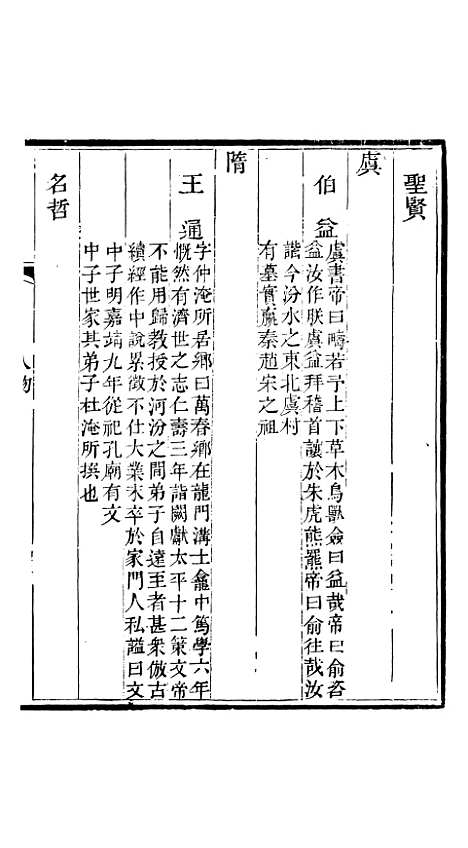 聖賢
虞
伯益
虞書帝曰疇若予上下草木鳥獸僉曰益哉帝曰俞咨
益汝作朕虞益拜稽首讓於朱虎熊羆帝曰俞往哉汝
諧今汾水之東北虞村
有墓實嬴秦趙宋之祖
隋
王通
字仲淹所居鄉曰萬春鄉在龍門溝土龕中篤學六年
慨然有濟世之志仁壽三年詣闕獻太平十二策文帝
不能用歸教授於河汾之間弟子自遠至者甚衆倣古
續經作中說累徵不仕大業末卒於家門人私謚曰文
中子明嘉靖九年從祀孔廟有文
中子世家其弟子杜淹所撰也
名哲
人物